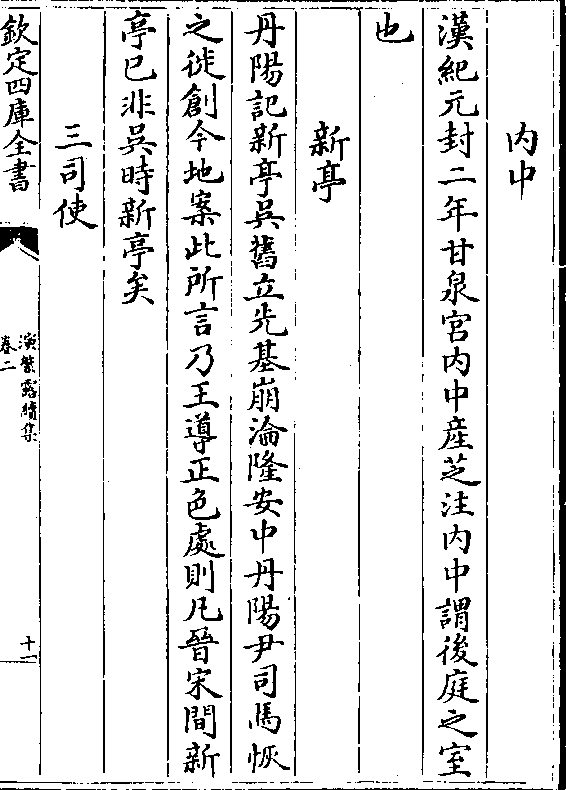 内中
漢紀元封二年甘泉宮内中産芝注内中謂後庭之室
也
新亭
丹陽記新亭吳舊立先基崩淪隆安中丹陽尹司馬恢
之徙創今地案此所言乃王導正色處則凡晉宋間新
亭已非吳時新亭矣
三司使
欽定四庫全書
演繁露續集
卷二
十一